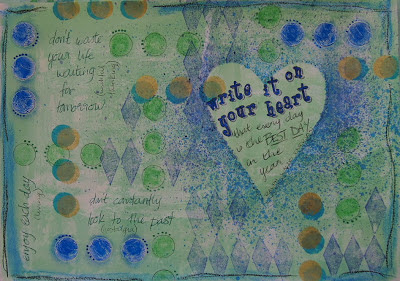 dont waste
your life
waiting
for
tomorrow
enjoy each day
dont constantly
look to the past
write it on
your heart
that every day
is the BEST DAY
in the
year